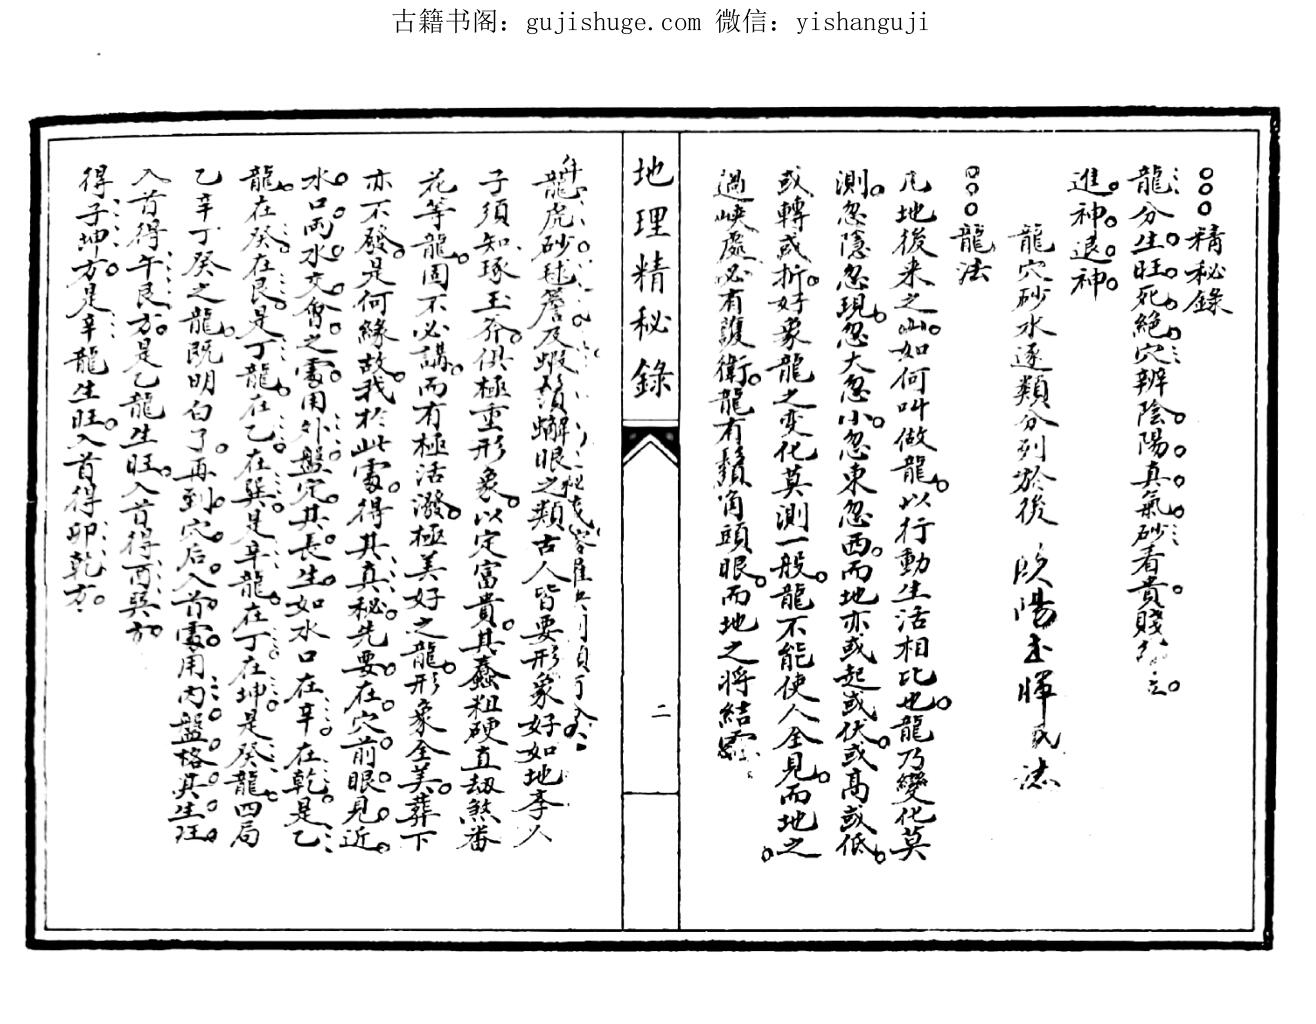 古籍书阁：gujishuge.com 微信：yishanguji
精秘錄
龍分生旺死絕穴辨陰陽真氣砂看貴賤
進神退神
龍穴砂水逐類分列於後 歐陽玉暉氏誌
龍法
凡地後来之山如何叫做龍以行動生活相比也龍乃變化莫
測忽隱忽現忽大忽小忽東忽西而地亦或起或伏或高或低
或轉或折好象龍之变化莫測一般龍不能使人全見而地之
過峽處必有護衛龍有鬚角頭眼而地之将結
地理精秘錄
二
龍虎砂毬簷及蝦鬚蠏眼之類古人皆要形象好如地李人
子須知琢玉斧俱極重形象以定富貴其蠢粗硬直刼煞番
花等龍固不必講而有極活潑極美好之龍形象全美葬下
亦不發是何緣故我於此處得其真秘先要在穴前眼見近
水口兩水交會之處用外盤定其長生如水口在辛在乾是乙
龍在癸在艮是丁龍在乙在巽是辛龍在丁在坤是癸龍四局
乙辛丁癸之龍既明白了再到穴后入首處用内盤格其生旺
入首得午艮方是乙龍生旺入首得酉巽方
得子坤方是辛龍生旺入首得卯乾方